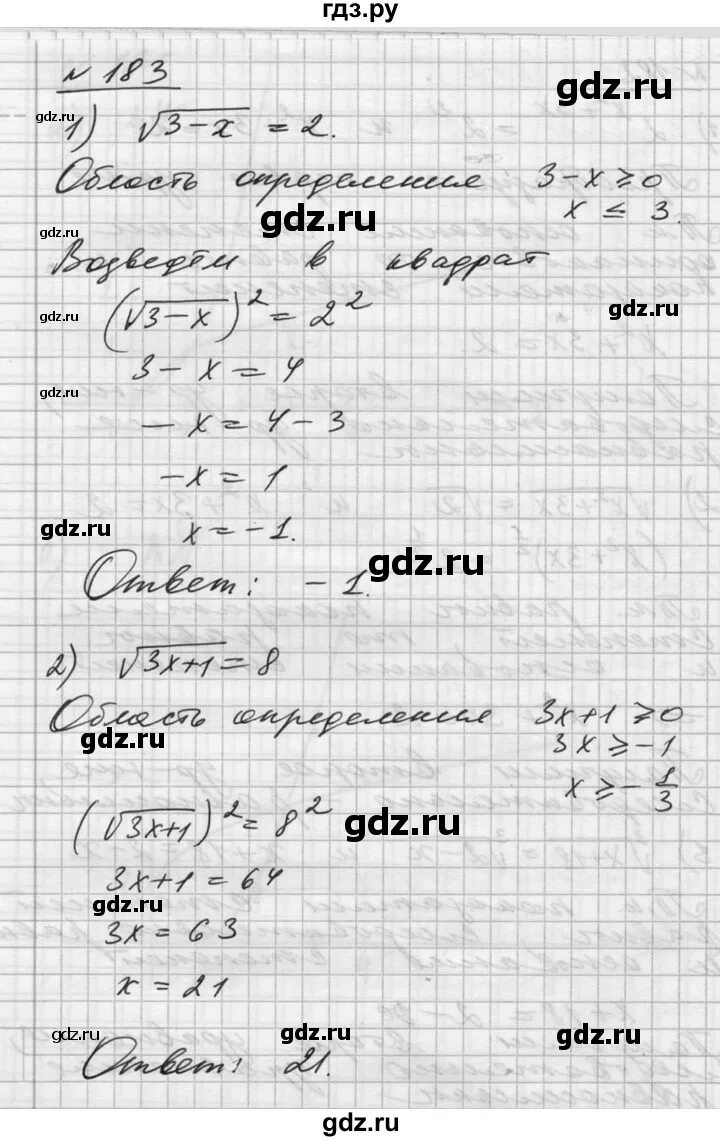 гдз.ру
№ 183
gdz.ru gdz.ru
1) √3-x = 2.
Область определения 3-x ≥ 0
gdz.ru
x ≤ 3.
gdz.ru
Возведём в квадрат
(√3-x)² = 2²
gdz.ru gdz.ru
3 - x = 4
gdz.ru
- x = 4 - 3
-x = 1
gdz.ru
x = -1.
gdz.ru
Ответ: -1.
2) √3x+1 = 8
Область определения 3x+1 ≥ 0
gdz.ru
3x ≥ -1
x ≥ -1/3
(√3x+1)² = 8²
gdz.ru
3x+1 = 64
gdz.ru
3x = 63
x = 21
gdz.ru gdz.ru gdz.ru
Ответ: 21.
gdz.ru